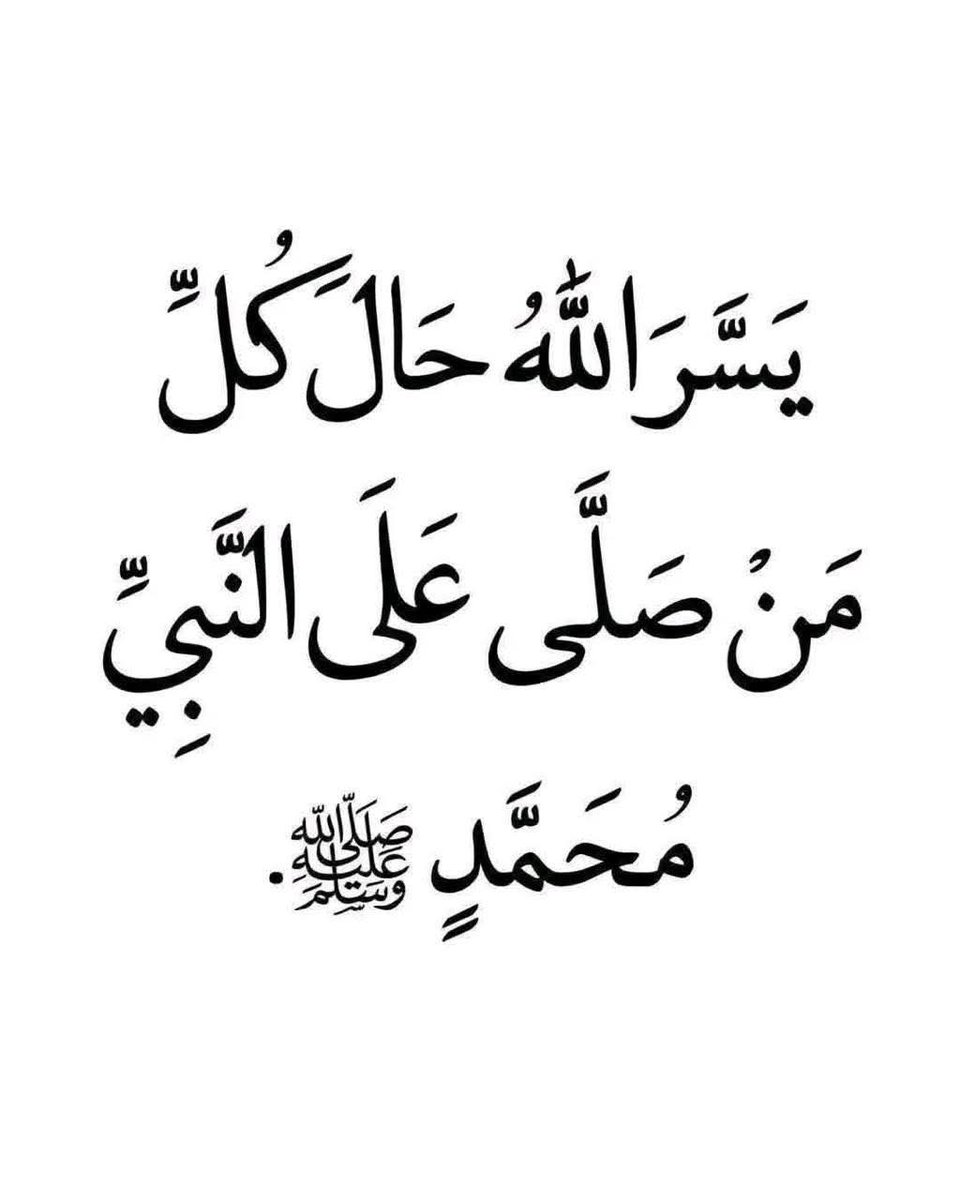 يَسَّرَ اللّٰهُ حَالَ كُلِّ
مَنْ صَلَّى عَلَى النَّبِيِّ
مُحَمَّدٍ ﷺ.